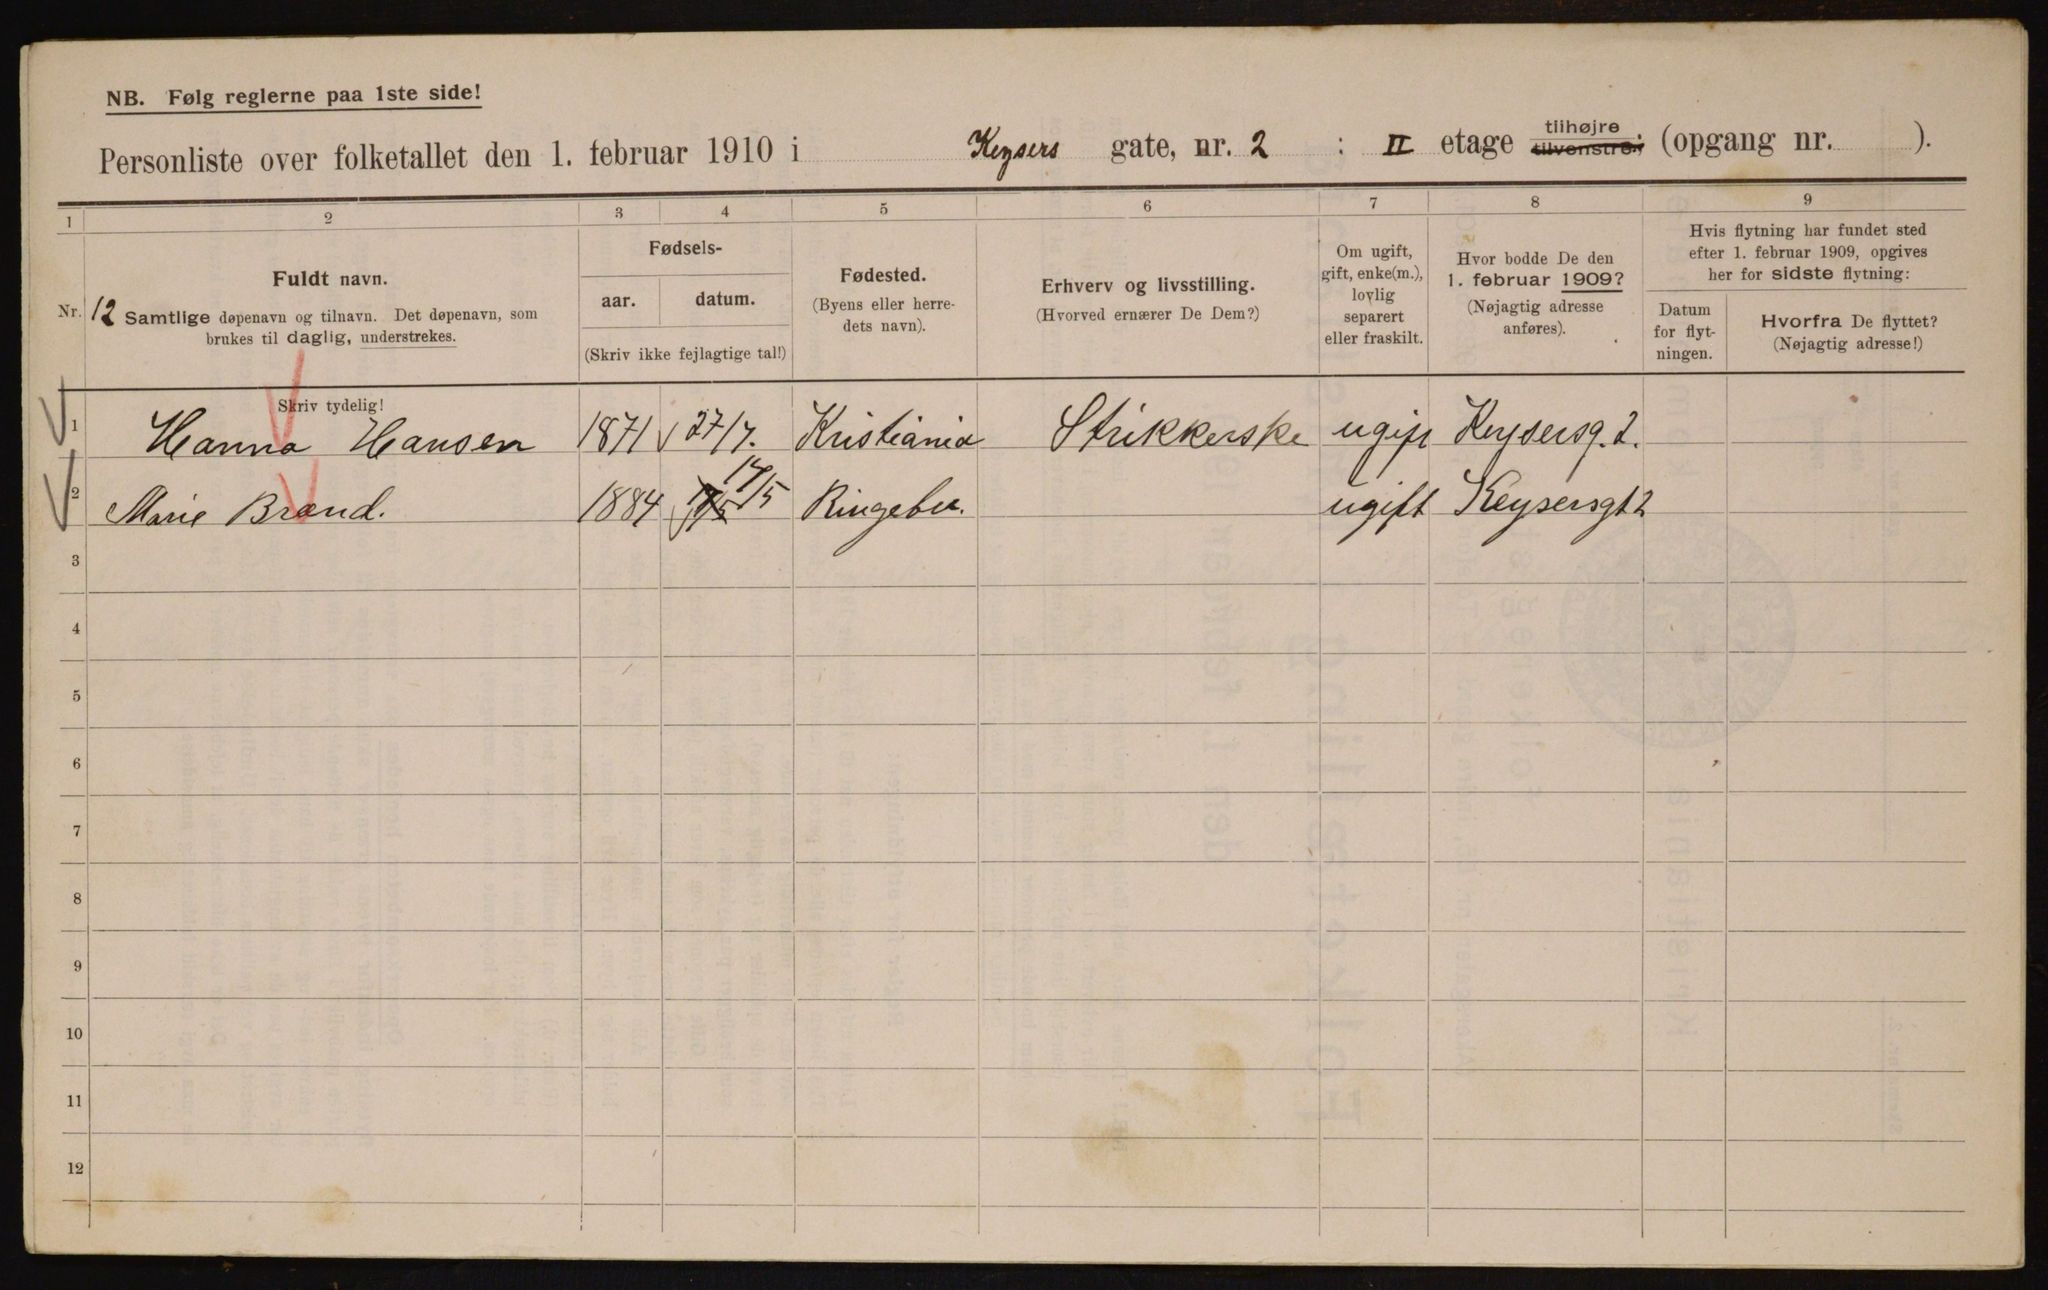 NB. Følg reglerne paa 1ste side!
Personliste over folketallet den 1. februar 1910 i Keysers gate, nr. 2 : II etage tilhøjre tilvenstre; (opgang nr. ).
1 2 3 4 5 6 7 8 9
Nr. 12
Fuldt navn.
Samtlige døpenavn og tilnavn. Det døpenavn, som
brukes til daglig, understrekes.
Skriv tydelig!
Fødsels-
aar. datum.
(Skriv ikke fejlagtige tal!)
Fødested.
(Byens eller herre-
dets navn).
Erhverv og livsstilling.
(Hvorved ernærer De Dem?)
Om ugift,
gift, enke(m.),
lovlig
separert
eller fraskilt.
Hvor bodde De den
1. februar 1909?
(Nøjagtig adresse
anføres).
Hvis flytning har fundet sted
efter 1. februar 1909, opgives
her for sidste flytning:
Datum
for flyt-
ningen.
Hvorfra De flyttet?
(Nøjagtig adresse!)
1 Hanna Hansen 1871 27/7. Kristiania Strikkerske ugift Keysersg. 2.
2 Marie Brand. 1884 17/5 Ringebu. ugift Keysersgt 2
3
4
5
6
7
8
9
10
11
12